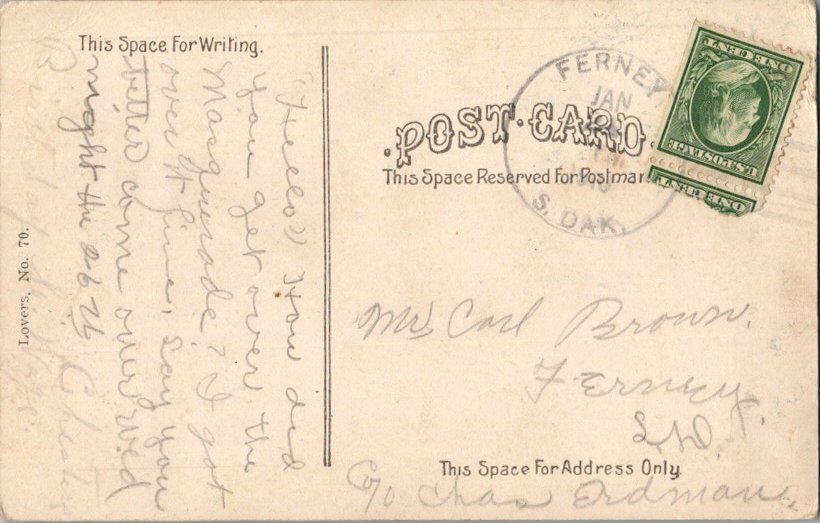 This Space For Writing.
"Hello" How did
you get over the
Masquerade? I got
over it fine, say you
better come over wed
night the 26th
Chester
Lovers, No. 70.
·POST·CARD·
This Space Reserved For Postmar
FERNEY,
JAN
S. DAK.
U.S. POSTAGE
ONE CENT
ONE CENT
Mr Carl Brown.
Ferney,
S.D.
This Space For Address Only.
C/o Chas Erdman.